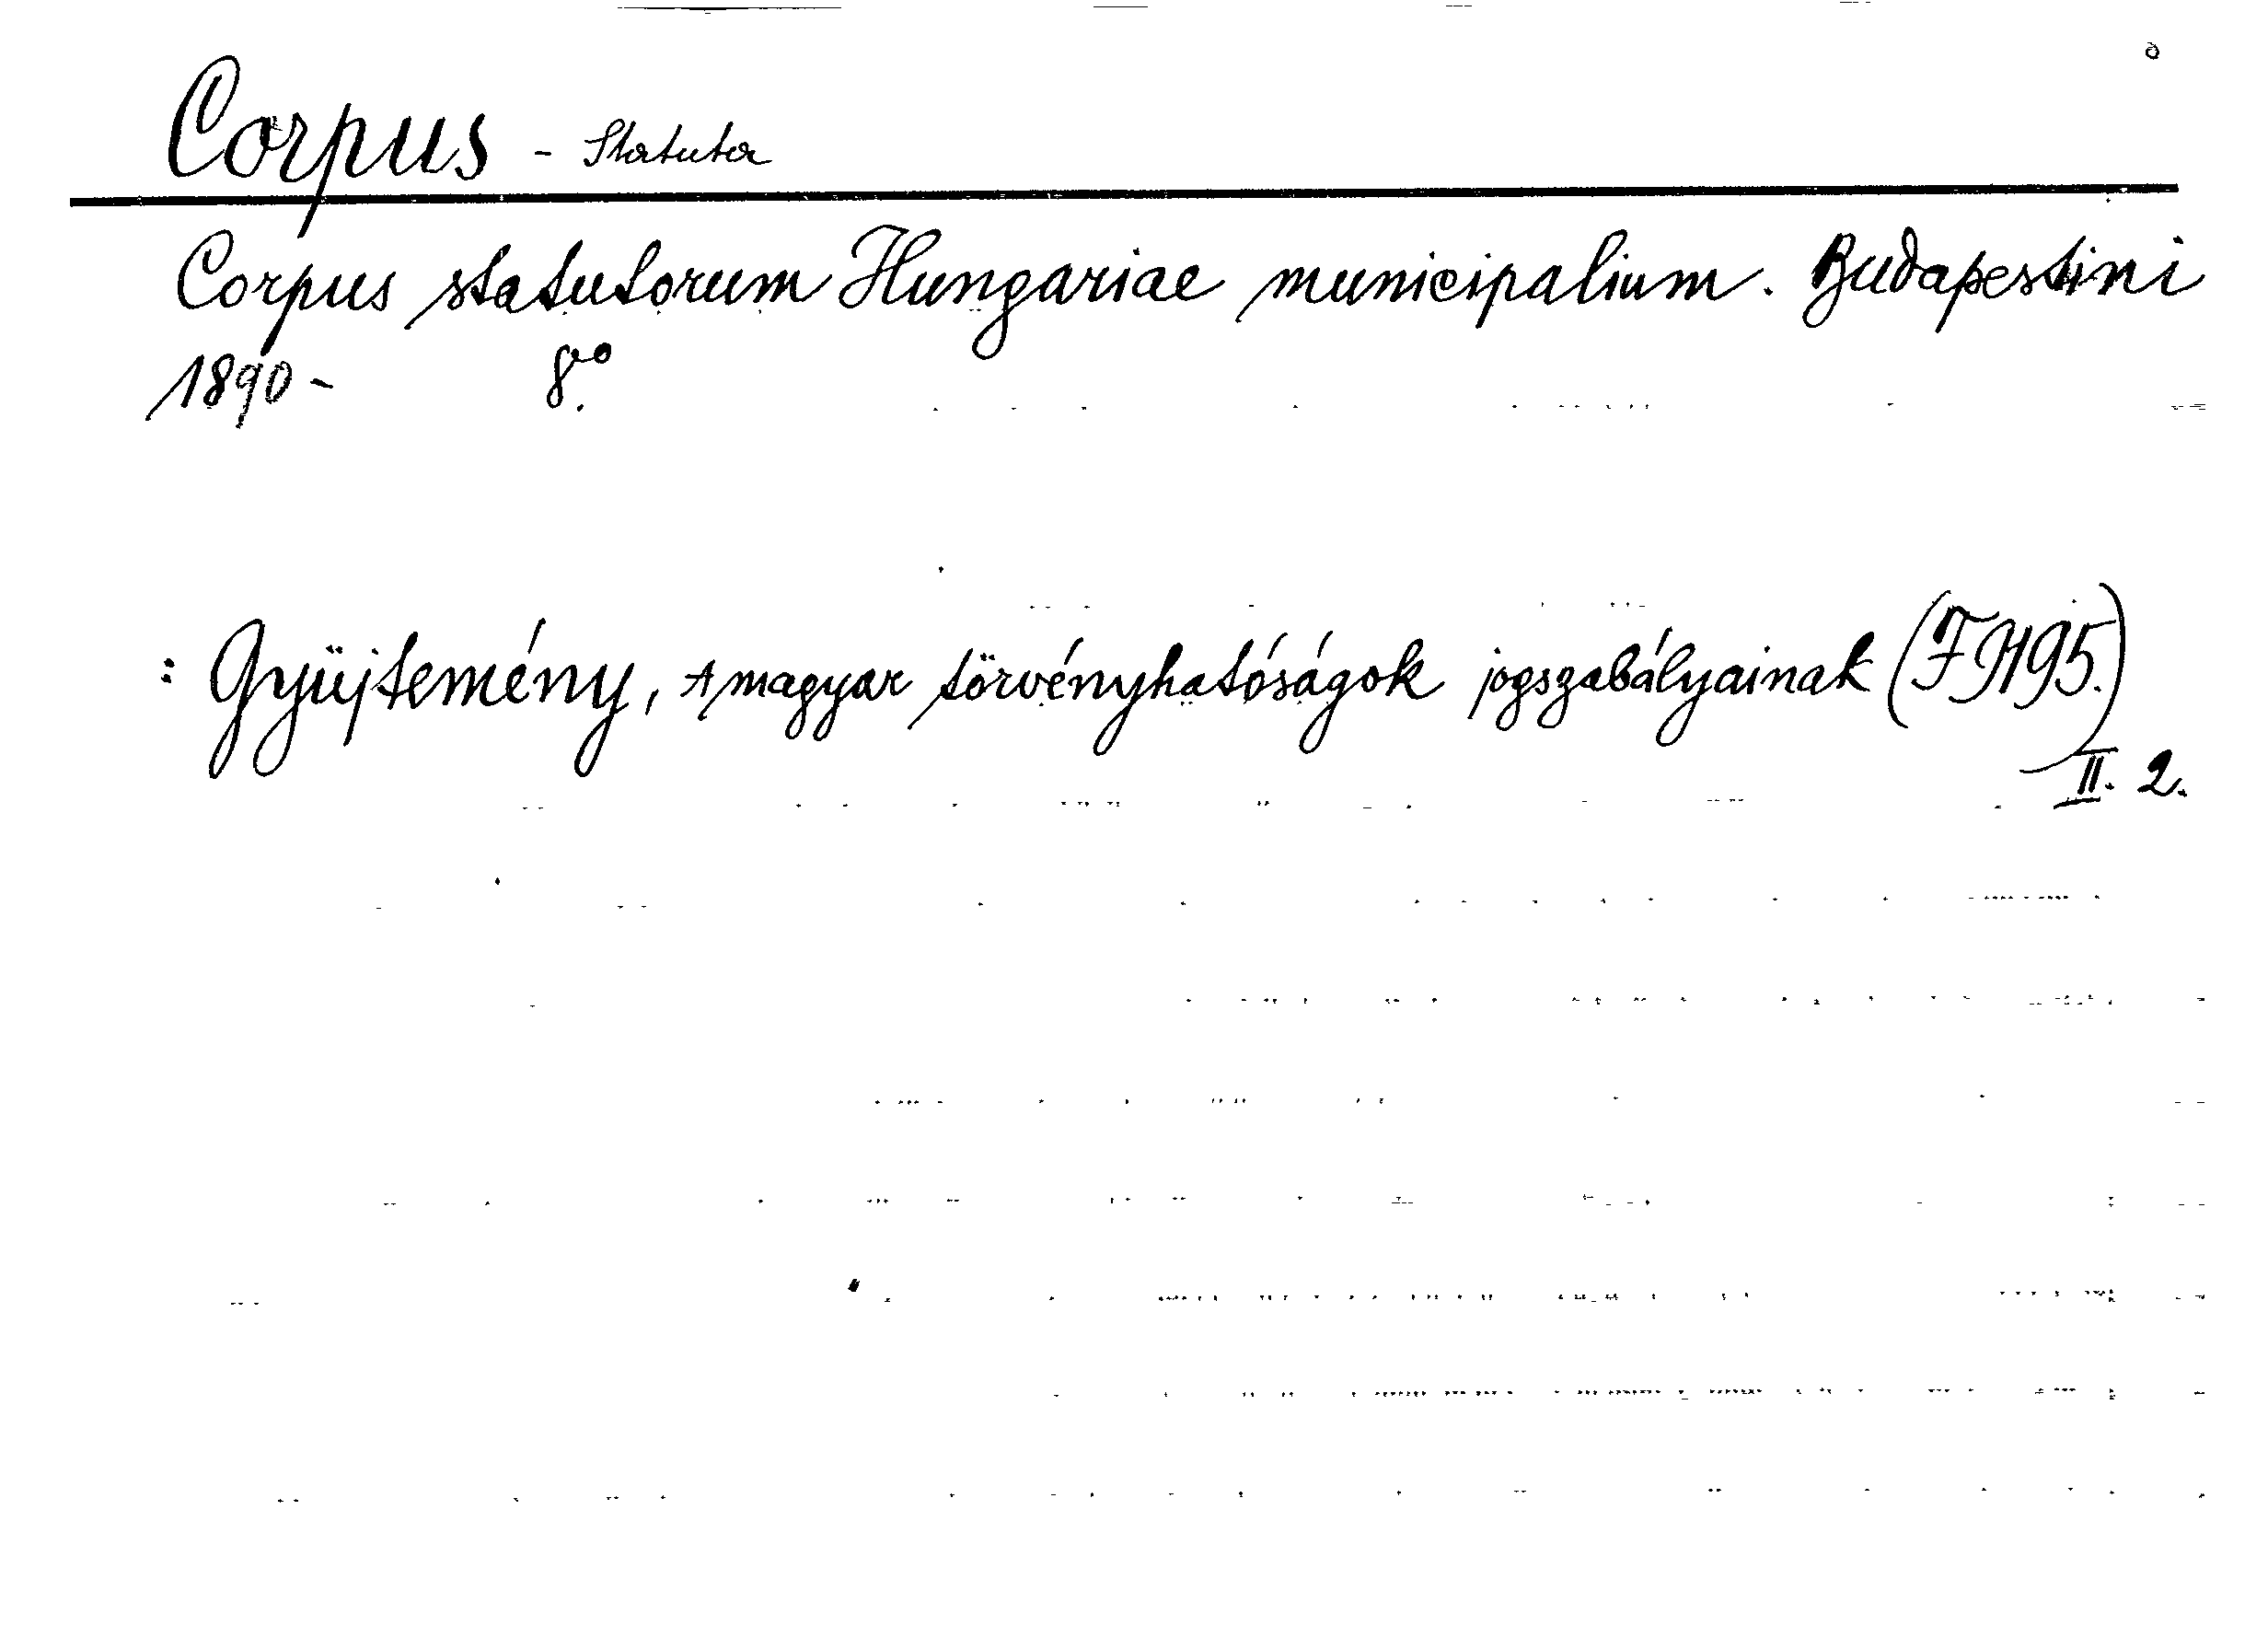 Corpus - Statuta
Corpus statutorum Hungariae municipalium. Budapestini
1890- 8ºº.
: Gyüjtemény, A magyar törvényhatóságok jogszabályainak
II. 2.